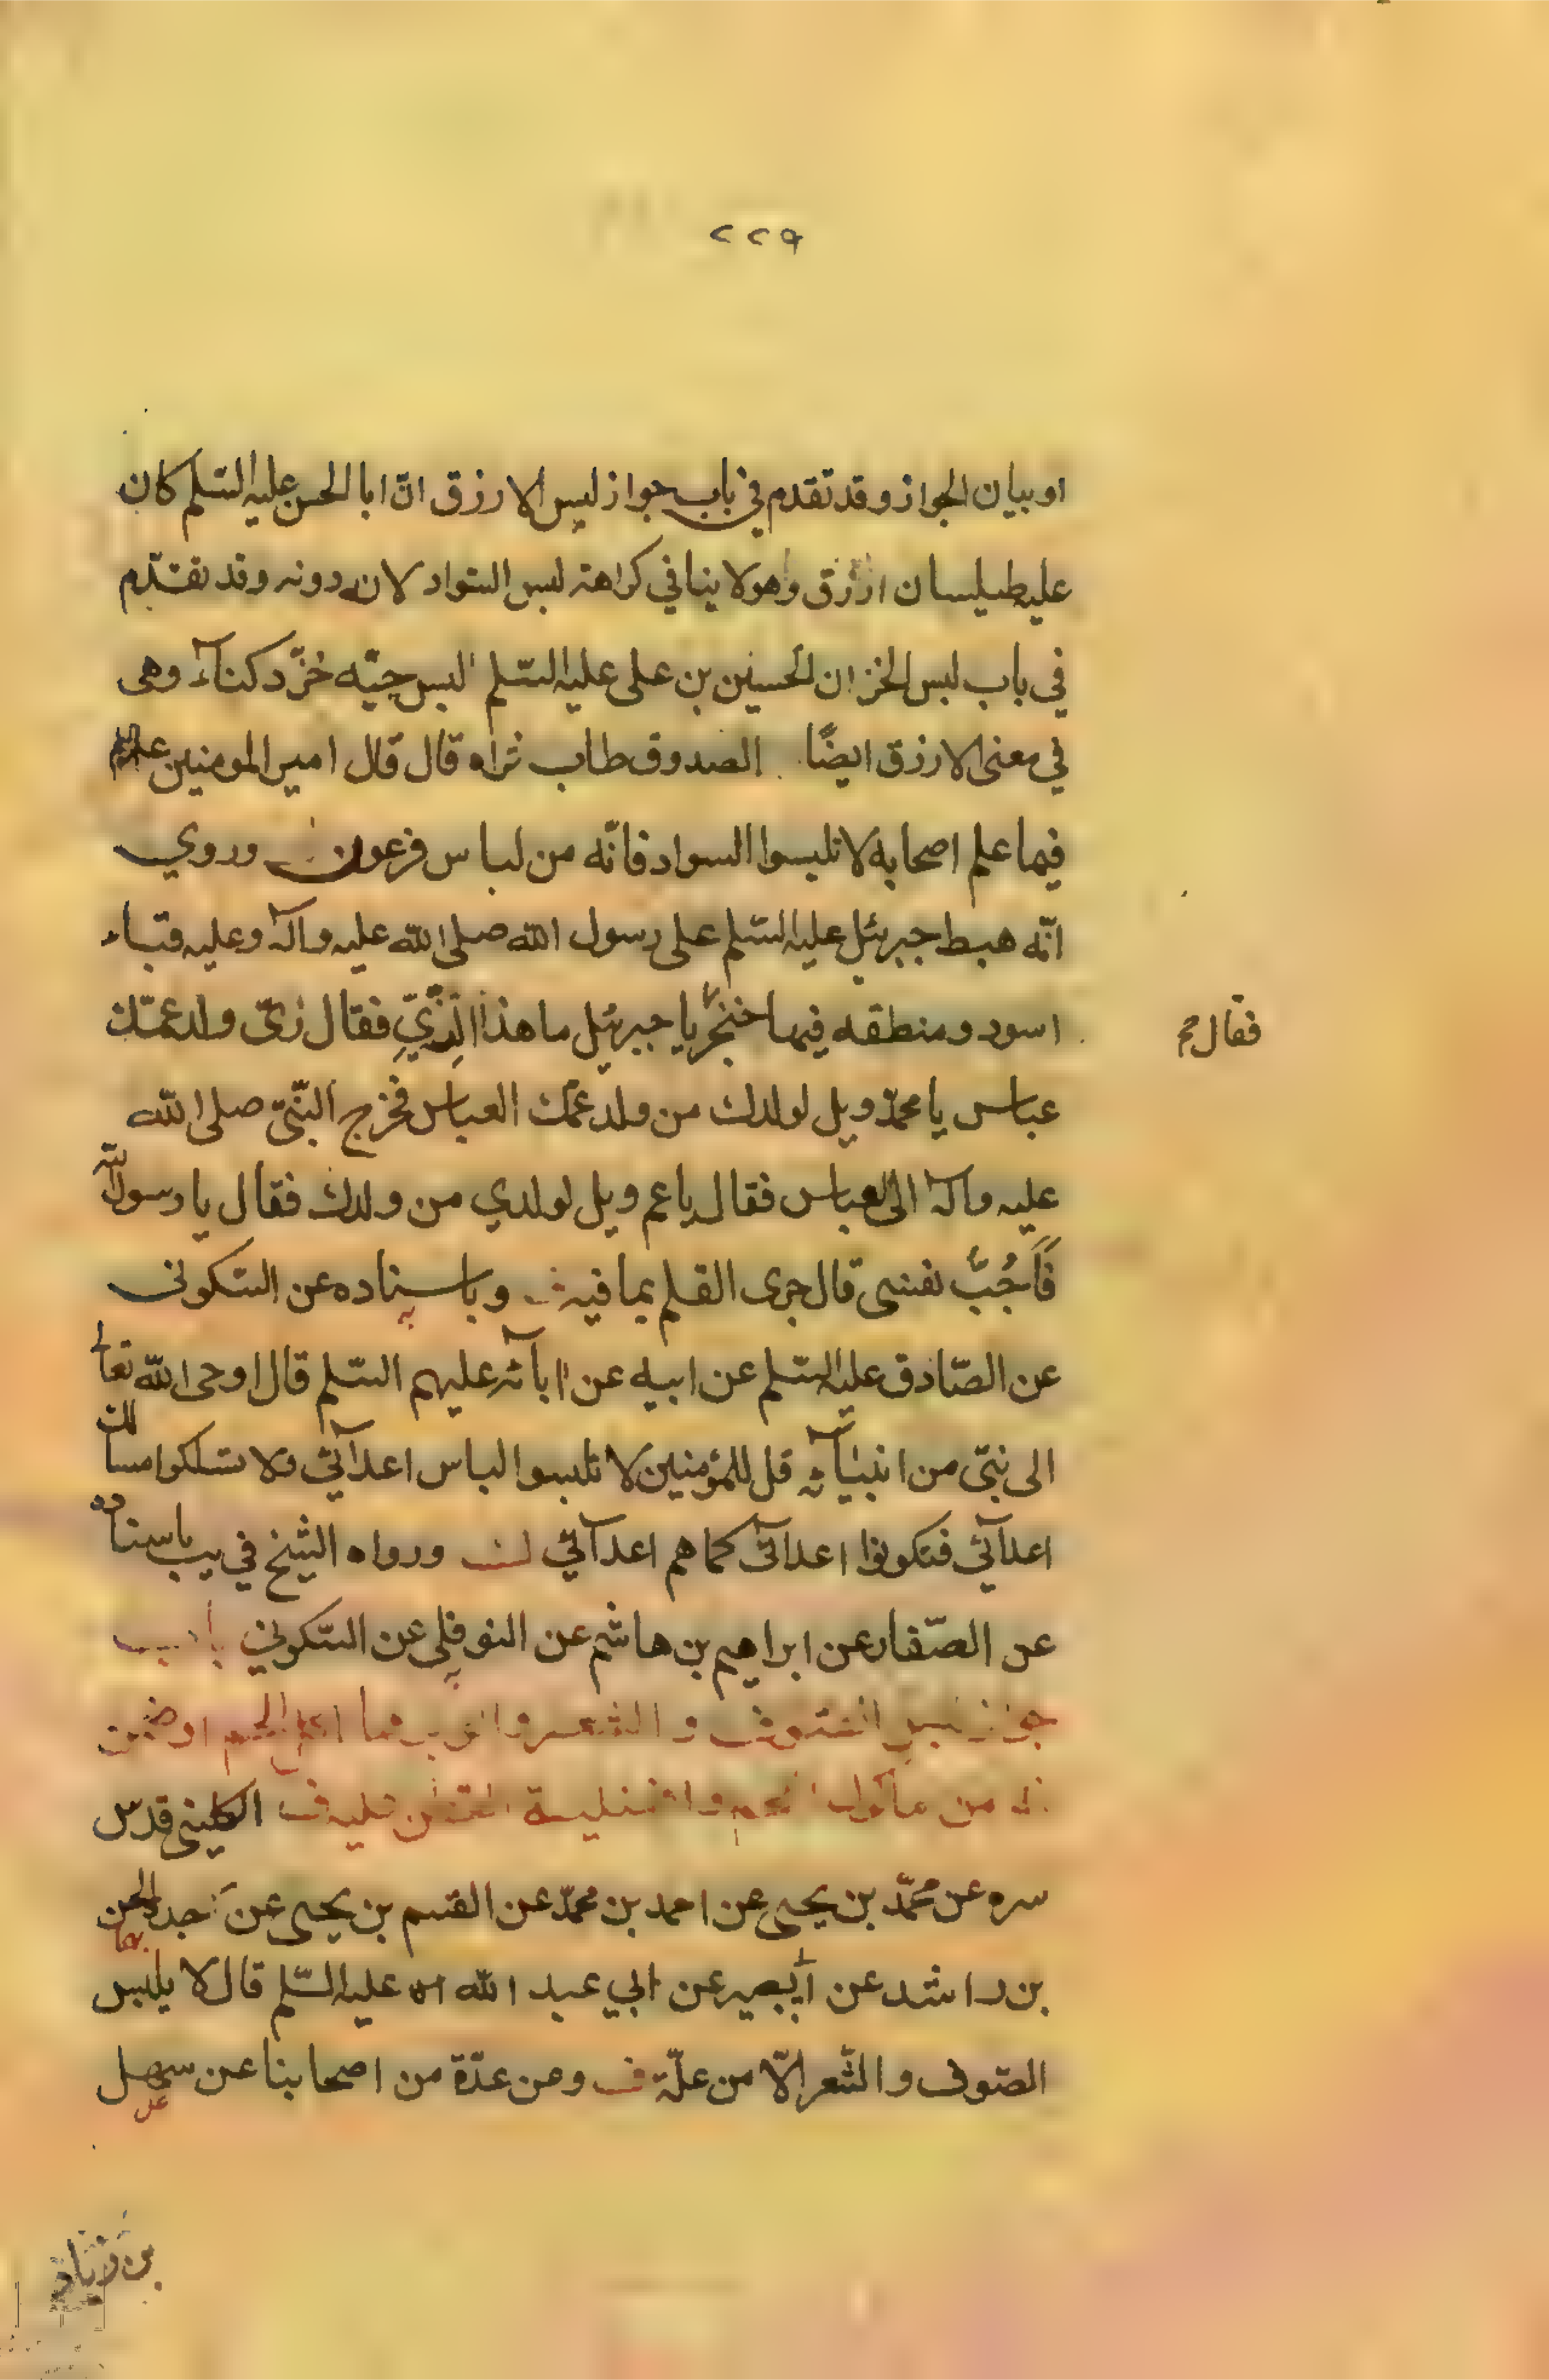 ٢٢٩
او بيان الجواز وقد تقدم في باب جواز لبس الازرق انّ ابا الحسن عليه السّلم كان
عليه طيلسان ازرق وهو لا ينافي كراهة لبس السّواد لانه دونه وقد تقدّم
في باب لبس الخز ان الحسين بن على عليه السّلم لبس جبّه خزّ دكنآء وهى
في معنى الازرق ايضًا الصدوق طاب ثراه قال قال امير المومنين عليه السّلم
فيما علم اصحابه لا تلبسوا السواد فانّه من لباس فرعون وروي
انّه هبط جبرئيل عليه السّلم على رسول الله صلى الله عليه وآله وعليه قباء
اسود ومنطقه فيها خنجر يا جبرئيل ما هذا الزّيّ فقال زىّ ولد عمّك
فقال
عباس يا محمّد ويل لولدك من ولد عمّك العباس فخرج النّبىّ صلى الله
عليه وآله الى العباس فقال يا عم ويل لولدي من ولدك فقال يا رسول الله
فَأَجُبُّ نفسى قال جرى القلم بما فيه وباسناده عن السّكونى
عن الصّادق عليه السّلم عن ابيه عن ابآئه عليهم السّلم قال اوحى الله تعالى
الى نبىّ من انبيآئه قل للمؤمنين لا تلبسوا لباس اعدآئي ولا تسلكوا مسالك
اعدآئي فتكونوا اعدآئى كما هم اعدآئي ورواه الشيخ في يب باسناده
عن الصّفار عن ابراهيم بن هاشم عن النوفلى عن السّكوني باب
جواز لبس الصّوف والشعر والوبر مما اكل لحمه
من مأكول اللحم الكلينى قدس
سره عن محمّد بن يحيى عن احمد بن محمّد عن القسم بن يحيى عن جده الحسن
بن راشد عن ابى بصير عن ابي عبد الله عليه السّلم قال لا يلبس
الصّوف والشّعر الّا من علّة ف وعن عدّة من اصحابنا عن سهل
بن زياد